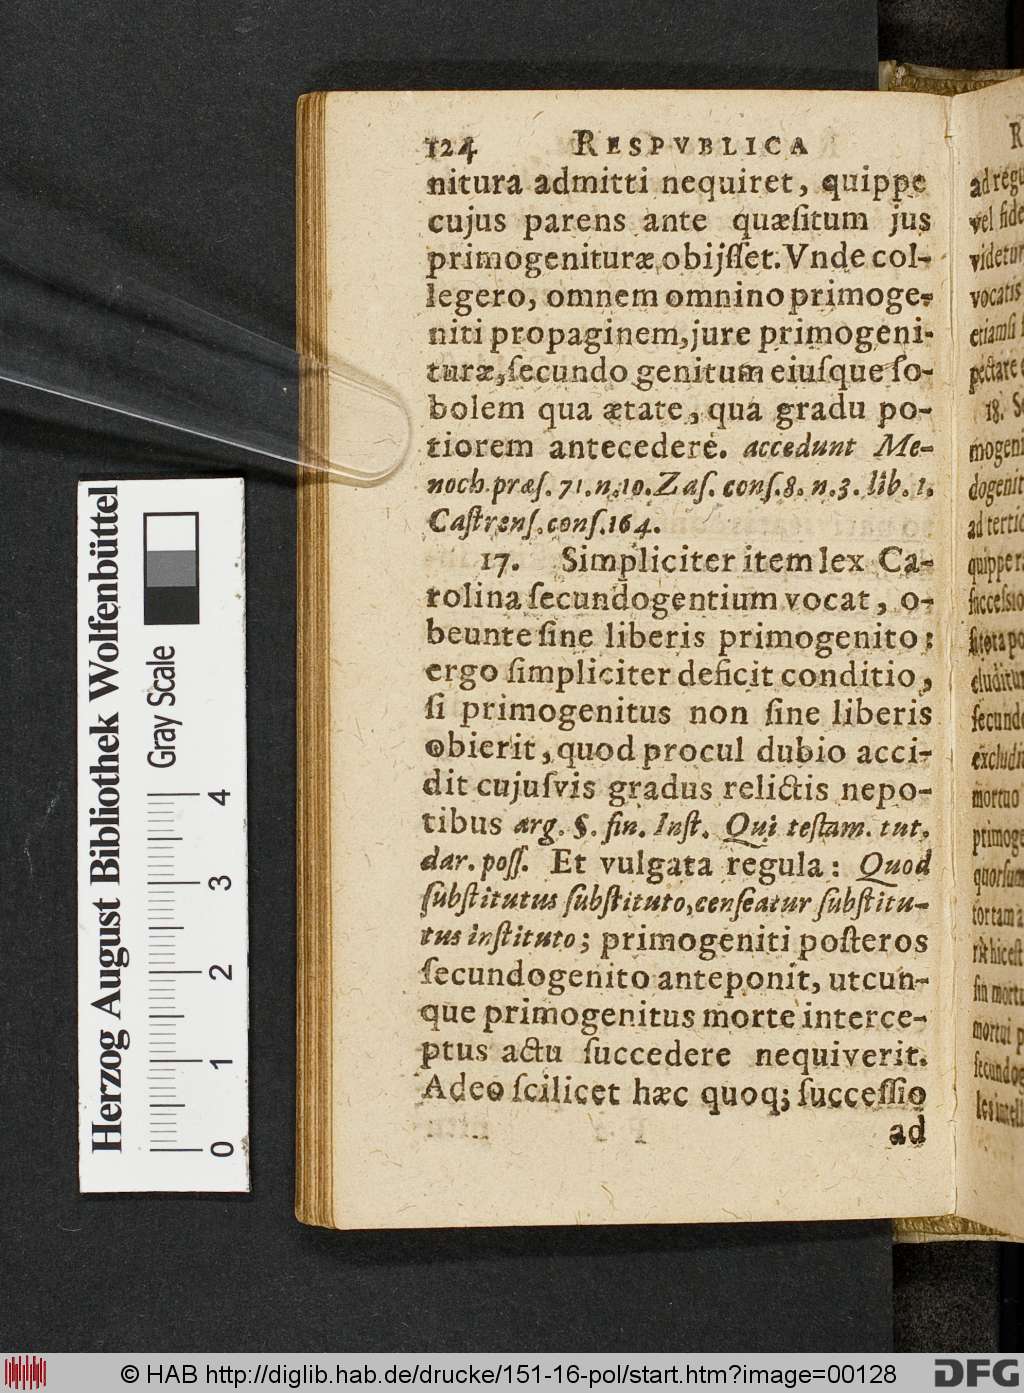 124 RESPVBLICA
nitura admitti nequiret, quippe
cujus parens ante quæſitum jus
primogenituræ obijſſet. Vnde col-
legero, omnem omnino primoge-
niti propaginem, jure primogeni-
turæ, ſecundo genitum eiuſque ſo-
bolem qua ætate, qua gradu po-
tiorem antecedere. accedunt Me-
noch. præſ. 71. n. 10. Zaſ. conſ. 8. n. 3. lib. 1.
Caſtrenſ. conſ. 164.
17. Simpliciter item lex Ca-
rolina ſecundogentium vocat, o-
beunte ſine liberis primogenito:
ergo ſimpliciter deficit conditio,
ſi primogenitus non ſine liberis
obierit, quod procul dubio acci-
dit cujuſvis gradus relictis nepo-
tibus arg. §. fin. Inſt. Qui teſtam. tut.
dar. poſſ. Et vulgata regula: Quod
ſubſtitutus ſubſtituto, cenſeatur ſubſtitu-
tus inſtituto; primogeniti poſteros
ſecundogenito anteponit, utcun-
que primogenitus morte interce-
ptus actu ſuccedere nequiverit.
Adeo ſcilicet hæc quoq; ſucceſſio
ad
R
ad regu
vel fide
videtur
vocatis
etiamſi
pectare
18. Se
mogeni
dogenit
ad tertio
quippe r
ſucceſſio
eluditur
ſecundo
excludit
mortuo
primoge
quorſum
ſin mortu
mortui p
ſecundog
Herzog August Bibliothek Wolfenbüttel
Gray Scale
0 1 2 3 4
© HAB http://diglib.hab.de/drucke/151-16-pol/start.htm?image=00128
DFG